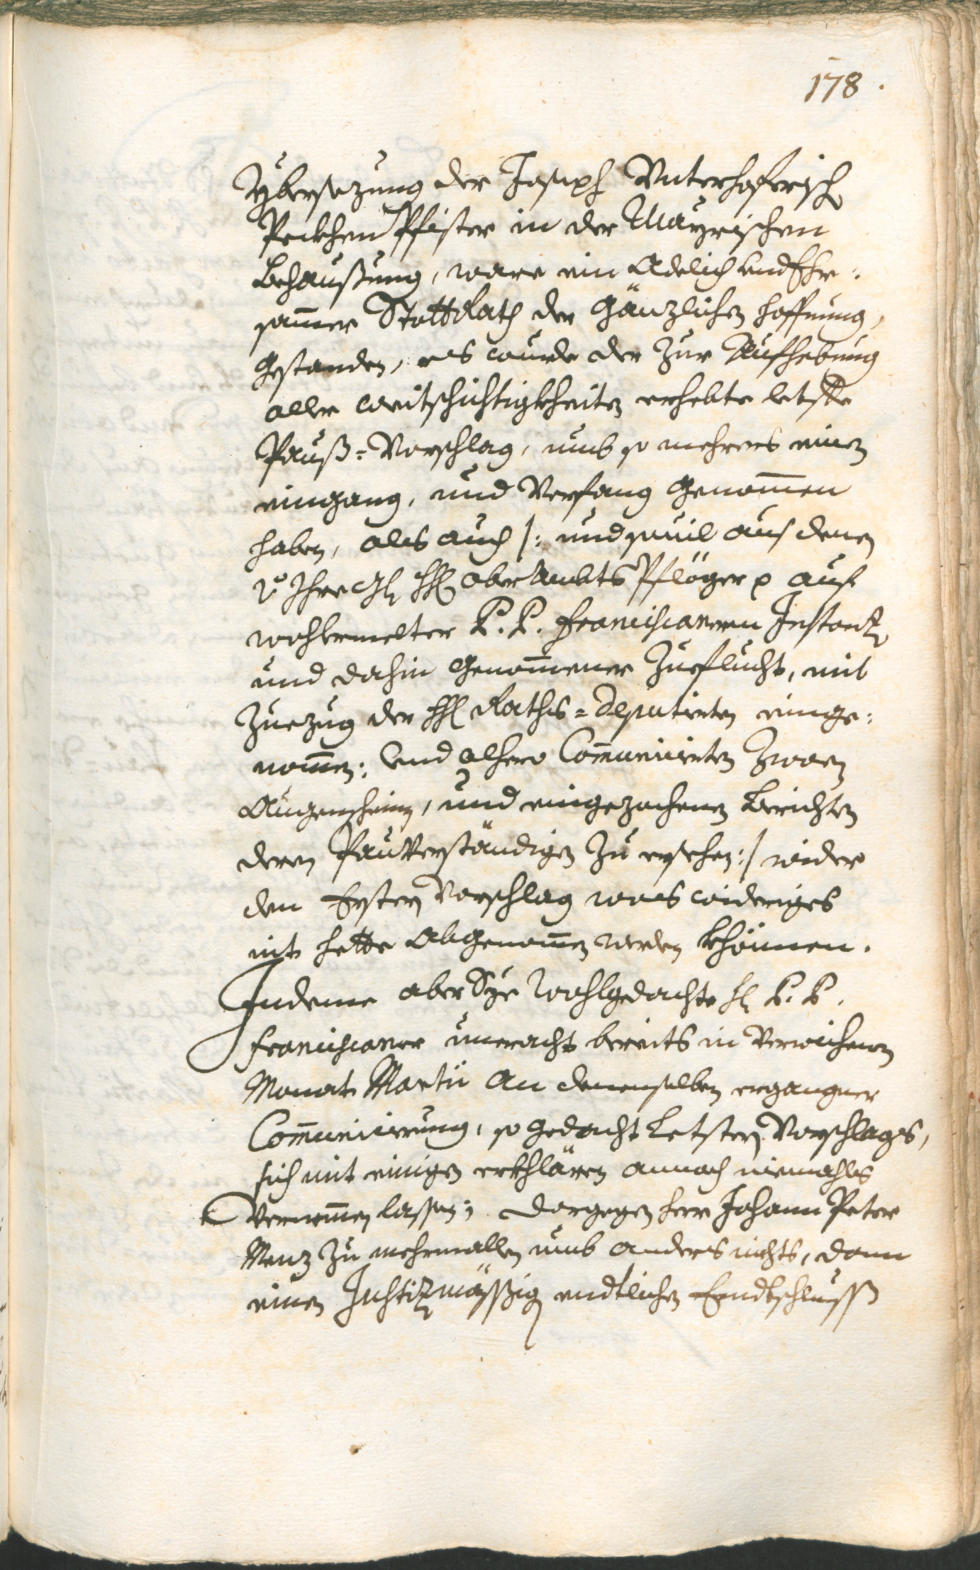 178.
Ybersezung der Joseph Unterhoferisch
Peckhen Pfister in der Mayrischen
Behaußung, ware ein Adelich und Ehr:
sammer StattRath der gänzlichen hoffnung,
gestanden, es wurde der zur Aufhebung
aller weitschichtigkheiten erhebte letste
Pauß=Vorschlag, umb so mehrers einen
eingang, und Verfang genommen
haben, als auch /: und souil aus denen
Ihre H: OberAmbts Pflöger p auf
wohlermelter P. P. Franciscanern Instantz
und dahin genommener Zueflucht, mit
Zuezug der H: Raths=Deputierten einge:
nommen: und alhero Communicierten Zwaen
Augenschein, und eingezochenen Berichten
deren PauVerständigen zu ersehen :/ wider
den Ersten Vorschlag was wideriges
nit hette Abgenommen werden khönnen.
Indeme aber Sye Wohlgedachte H: P. P.
Franciscaner uneracht bereits in Verwichenen
Monat Martii an denenselben ergangner
Communicierung, so gedacht Letsten Vorschlags,
sich mit einigen erkhlären annoch niemahls
Vernemmen lassen; dargegen herr Johann Peter
Menz zu mehrmallen umb anders nichts, dann
einen Justizmässig endtlichen Endtschluss